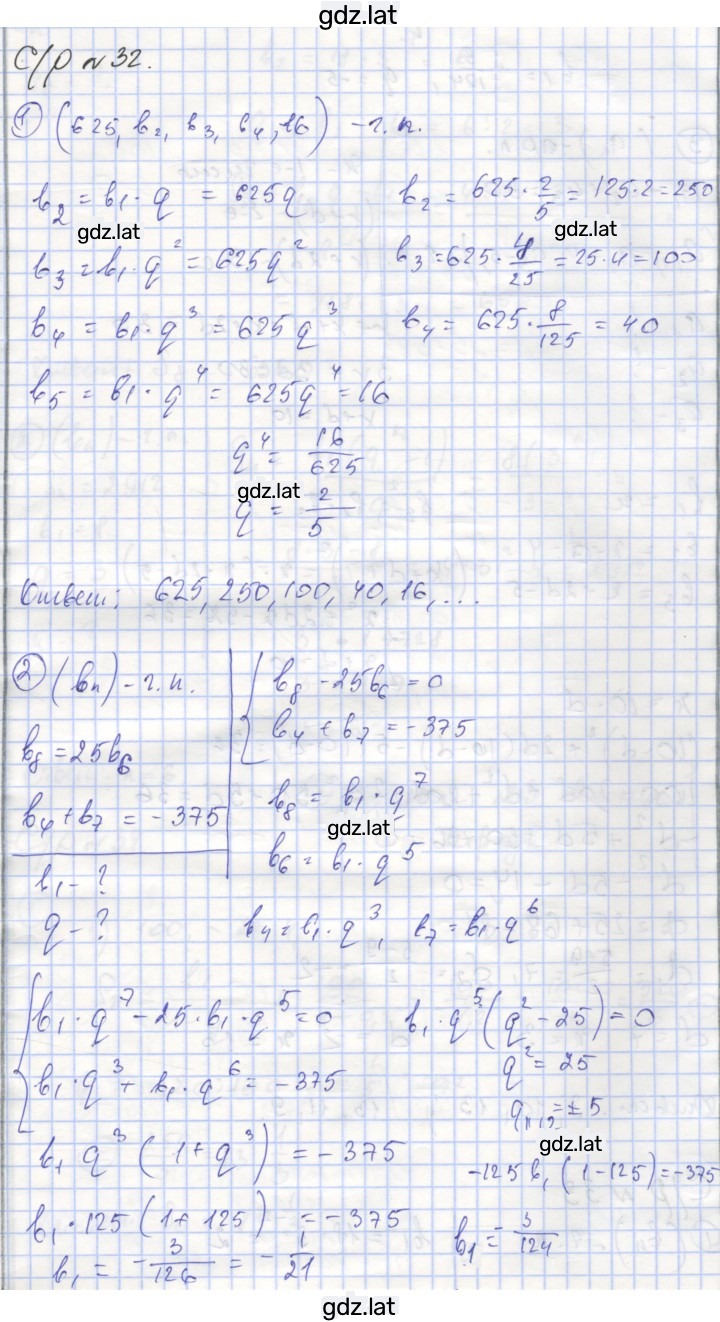 gdz.lat
С/р №32.
① (625, b₂, b₃, b₄, 16) – г.п.
b₂ = b₁ · q = 625q
b₂ = 625 · 2/5 = 125·2 = 250
gdz.lat
gdz.lat
b₃ = b₁ · q² = 625q²
b₃ = 625 · 4/25 = 25·4 = 100
b₄ = b₁ · q³ = 625q³
b₄ = 625 · 8/125 = 40
b₅ = b₁ · q⁴ = 625q⁴ = 16
q⁴ = 16/625
gdz.lat
q = 2/5
Ответ: 625, 250, 100, 40, 16, ...
② (bₙ) – г.п.
b₈ = 25b₆
b₄ + b₇ = -375
b₁ – ?
q – ?
{ b₈ - 25b₆ = 0
b₄ + b₇ = -375
b₈ = b₁ · q⁷
gdz.lat
b₆ = b₁ · q⁵
b₄ = b₁ · q³, b₇ = b₁ · q⁶
{ b₁ · q⁷ - 25 · b₁ · q⁵ = 0
b₁ · q³ + b₁ · q⁶ = -375
b₁ · q⁵ (q² - 25) = 0
q² = 25
q₁,₂ = ±5
gdz.lat
b₁ q³ (1 + q³) = -375
b₁ · 125 (1 + 125) = -375
b₁ = -3/126 = -1/21
-125 b₁ (1 - 125) = -375
b₁ = -3/124
gdz.lat